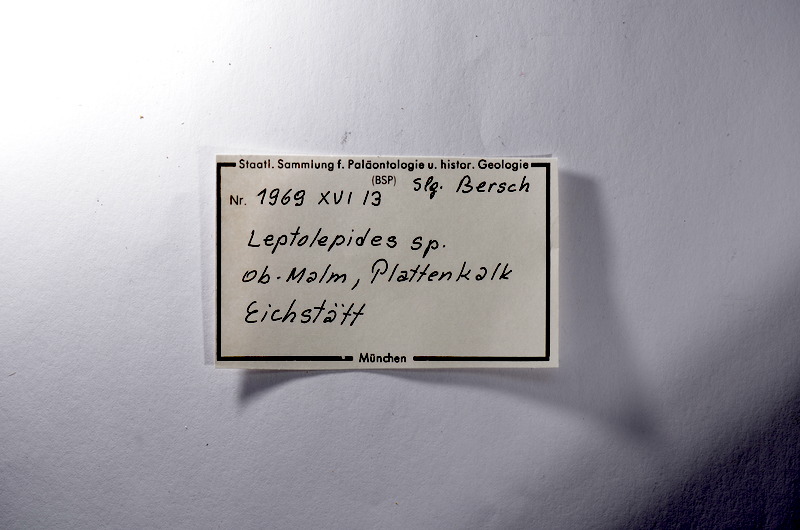 Staatl. Sammlung f. Paläontologie u. histor. Geologie
(BSP) Slg. Bersch
Nr. 1969 XVI 13
Leptolepides sp.
Ob. Malm, Plattenkalk
Eichstätt
München